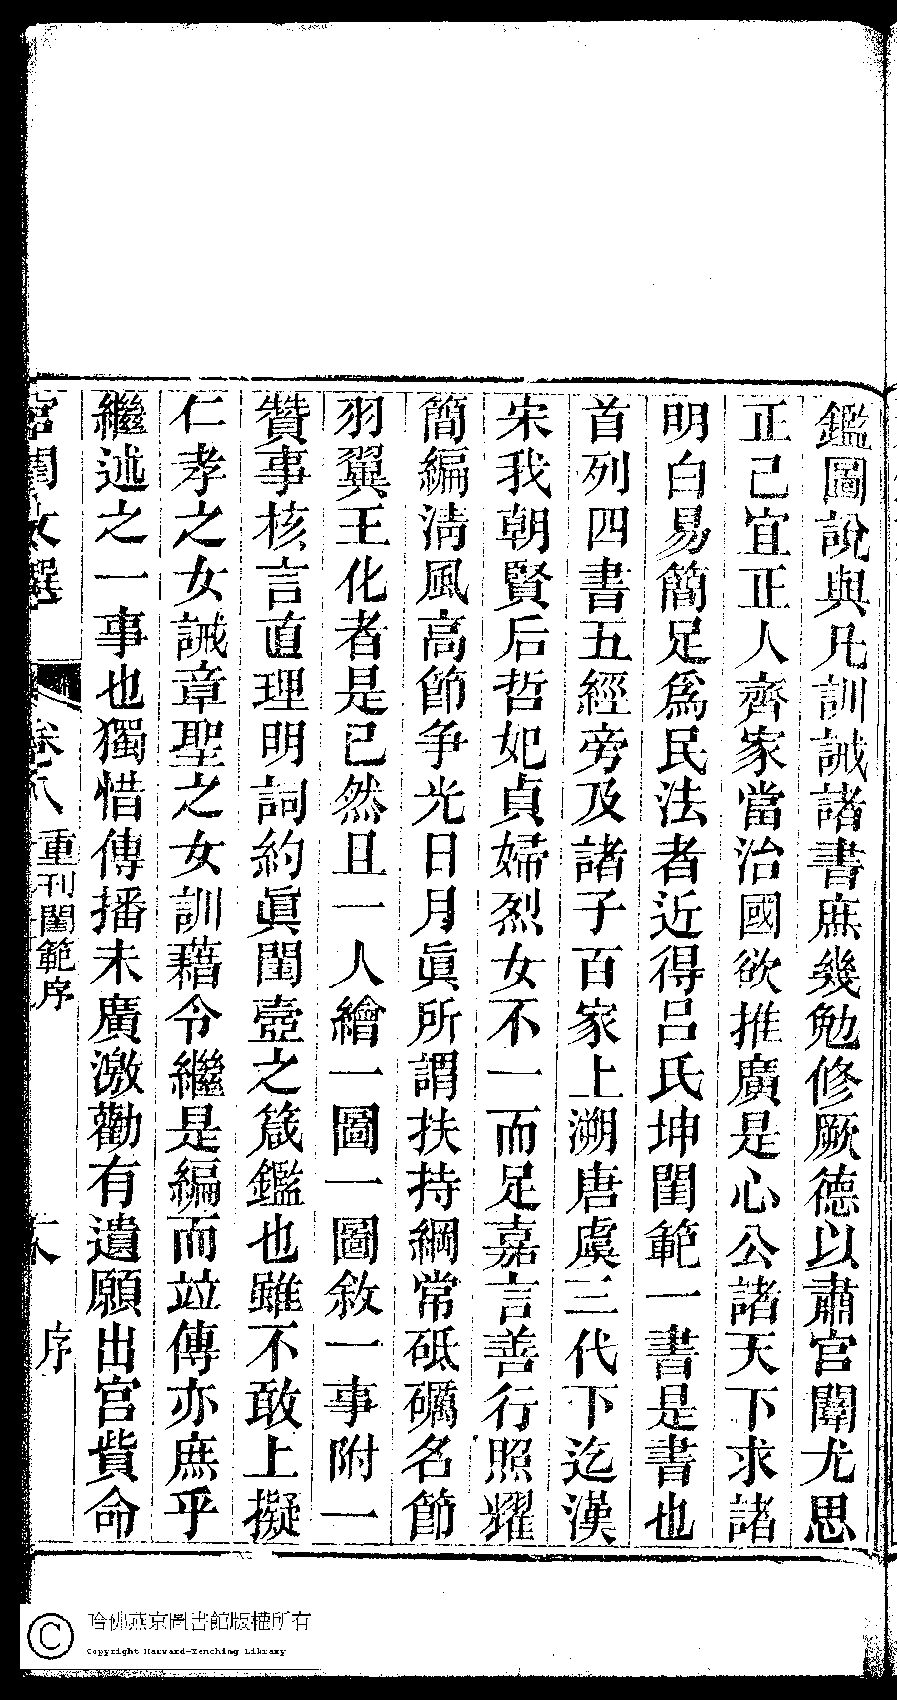 鑑圖說與凡訓誡諸書庶幾勉修厥德以肅宫闈尤思
正己宜正人齊家當治國欲推廣是心公諸天下求諸
明白易簡足爲民法者近得呂氏坤閨範一書是書也
首列四書五經旁及諸子百家上溯唐虞三代下迄漢
宋我朝賢后哲妃貞婦烈女不一而足嘉言善行照耀
簡編淸風高節争光日月眞所謂扶持綱常砥礪名節
羽翼王化者是已然且一人繪一圖一圖敘一事附一
贊事核言直理明詞約眞閨壼之箴鑑也雖不敢上擬
仁孝之女誡章聖之女訓藉令繼是編而竝傳亦庶乎
繼述之一事也獨惜傳播未廣激勸有遺願出宫貲命
宮閨文選
卷八
重刊閨範序
序
哈佛燕京圖書館版權所有
Copyright Harvard-Yenching Library